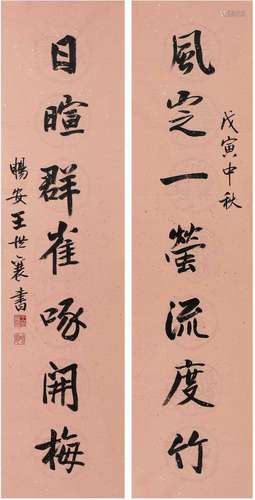 風定一螢流度竹
戊寅中秋
日暄群雀啄開梅
暢安王世襄書